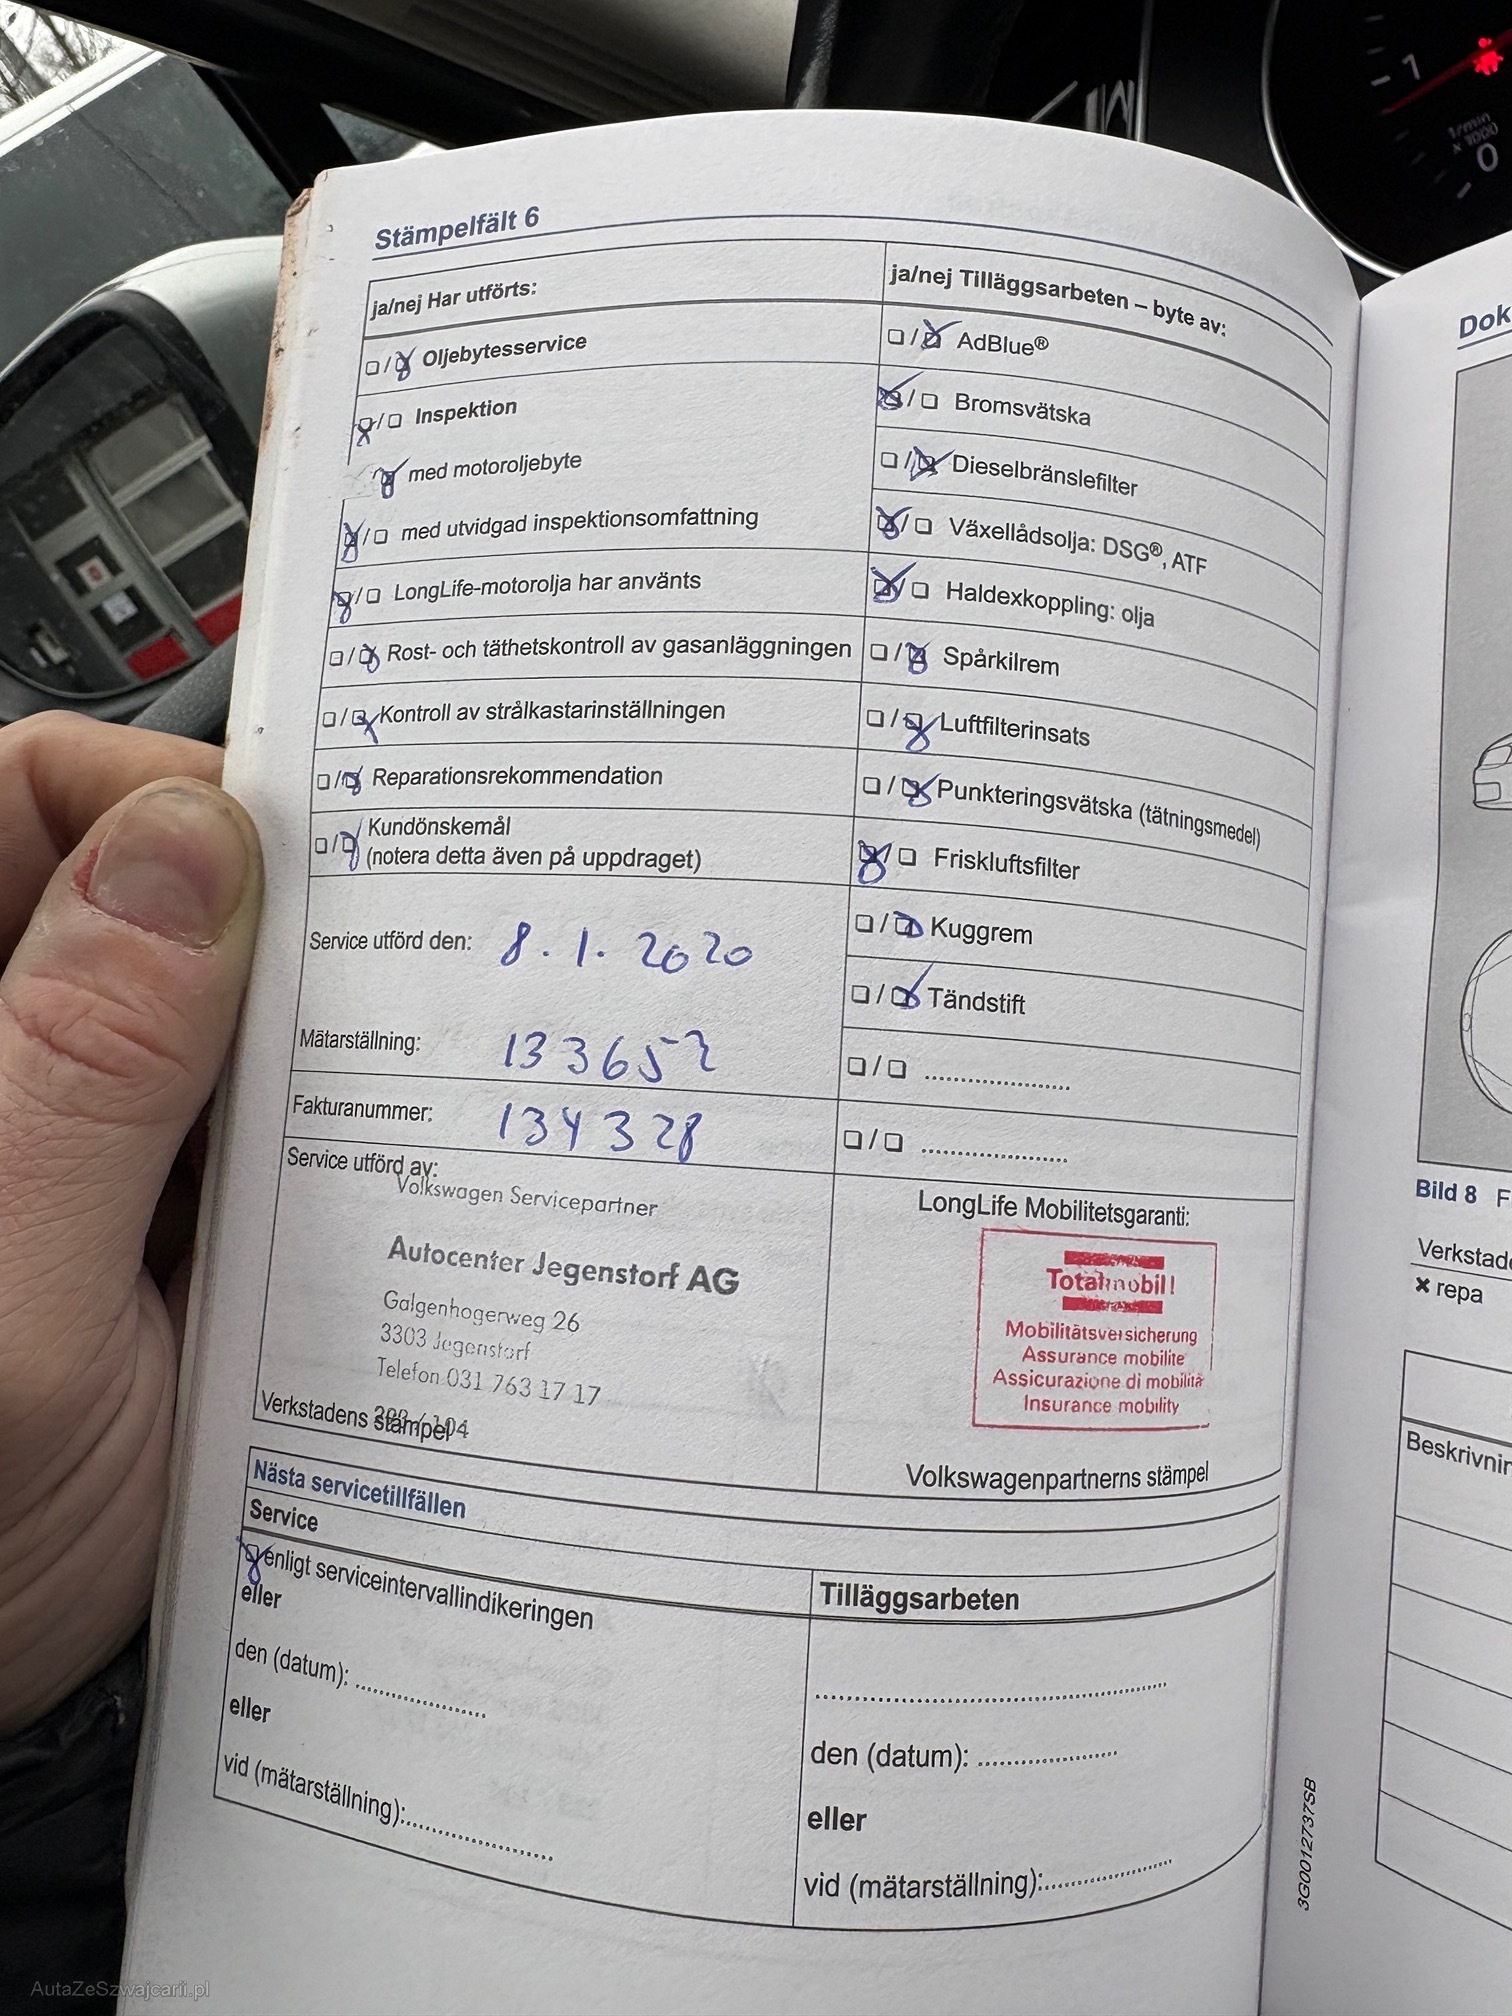 Stämpelfält 6
ja/nej Har utförts:
❏ / ❏ Oljebytesservice
❏ / ❏ Inspektion
❏ med motoroljebyte
❏ / ❏ med utvidgad inspektionsomfattning
❏ / ❏ LongLife-motorolja har använts
❏ / ❏ Rost- och täthetskontroll av gasanläggningen
❏ / ❏ Kontroll av strålkastarinställningen
❏ / ❏ Reparationsrekommendation
❏ / ❏ Kundönskemål
(notera detta även på uppdraget)
Service utförd den: 8.1.2020
Mätarställning: 133652
Fakturanummer: 134328
Service utförd av:
Volkswagen Servicepartner
Autocenter Jegenstorf AG
Galgenhogerweg 26
3303 Jegenstorf
Telefon 031 763 17 17
Verkstadens stämpel
ja/nej Tilläggsarbeten – byte av:
❏ / ❏ AdBlue®
❏ / ❏ Bromsvätska
❏ / ❏ Dieselbränslefilter
❏ / ❏ Växellådsolja: DSG®, ATF
❏ / ❏ Haldexkoppling: olja
❏ / ❏ Spårkilrem
❏ / ❏ Luftfilterinsats
❏ / ❏ Punkteringsvätska (tätningsmedel)
❏ / ❏ Friskluftsfilter
❏ / ❏ Kuggrem
❏ / ❏ Tändstift
❏ / ❏ ....................
❏ / ❏ ....................
LongLife Mobilitetsgaranti:
Totalmobil!
Mobilitätsversicherung
Assurance mobilité
Assicurazione di mobilità
Insurance mobility
Volkswagenpartnerns stämpel
Nästa servicetillfällen
Service
❏ enligt serviceintervallindikeringen
eller
den (datum): ....................
eller
vid (mätarställning):....................
Tilläggsarbeten
....................
den (datum): ....................
eller
vid (mätarställning):....................
3G0012737SB
Dok
Bild 8 F
Verkstad
✖ repa
Beskrivnin
1
1/min
x 1000
0
AutaZeSzwajcarii.pl